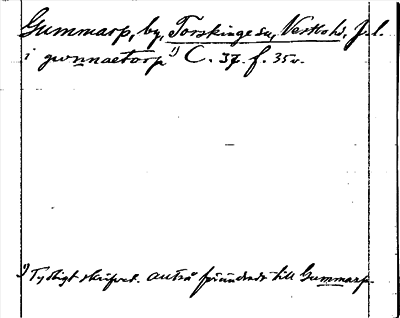 Gummarp, by, Torskinge sn, Västbo hd, J.l.
i gwnnaetorp ¹⁾ C. 37. f. 35v.
¹⁾ Tydligt skrivet. till Gummarp.